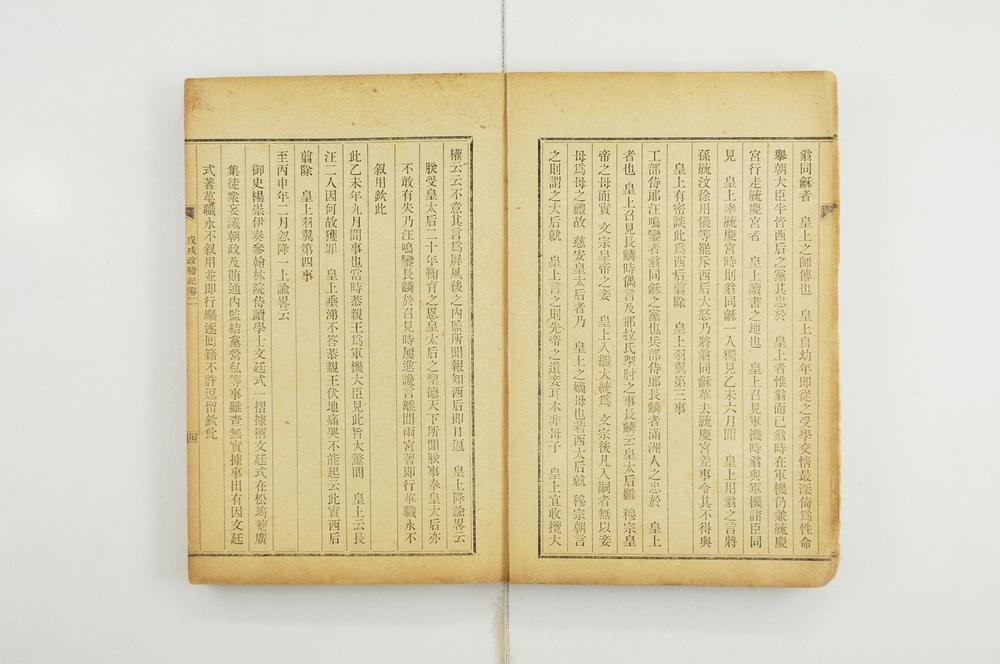 翁同龢者　皇上之師傅也　皇上自幼年即從之受學交情最深倚爲性命
舉朝大臣半皆西后之黨其忠於　皇上者惟翁而已翁時在軍機仍兼毓慶
宮行走毓慶宮者　皇上讀書之地也　皇上召見軍機時翁與軍機諸臣同
見　皇上幸毓慶宮時則翁同龢一人獨見乙未六月間　皇上用翁之言將
孫毓汶徐用儀等罷斥西后大怒乃將翁同龢革去毓慶宮差事令其不得與
皇上有密談此爲西后翦除　皇上羽翼第三事
工部侍郎汪鳴鑾者翁同龢之黨也兵部侍郎長麟者滿洲人之忠於　皇上
者也　皇上召見長麟時偶言及那拉氏掣肘之事長麟云皇太后雖　穆宗皇
帝之母而實　文宗皇帝之妾　皇上入繼大統爲　文宗後凡入嗣者無以妾
母爲母之禮故　慈安皇太后者乃　皇上之嫡母也若西太后就　穆宗朝言
之則謂之太后就　皇上言之則先帝之遺妾耳本非母子　皇上宜收攬大
權云云不意其言爲屏風後之內監所聞報知西后即日逼　皇上降諭畧云
朕受皇太后二十年鞠育之恩皇太后之聖德天下所聞朕事奉皇太后亦
不敢有失乃汪鳴鑾長麟於召見時屢進讒言離間兩宮著即行革職永不
叙用欽此
此乙未年九月間事也當時恭親王爲軍機大臣見此旨大驚問　皇上云長
汪二人因何故獲罪　皇上垂涕不答恭親王伏地痛哭不能起云此實西后
翦除　皇上羽翼第四事
至丙申年二月忽降一上諭畧云
御史楊崇伊奏參翰林院侍讀學士文廷式一摺據稱文廷式在松筠菴廣
集徒衆妄議朝政及賄通內監結黨營私等事雖查無實據事出有因文廷
式著革職永不叙用並即行驅逐囘籍不許逗留欽此
戊戌政變記卷二
四